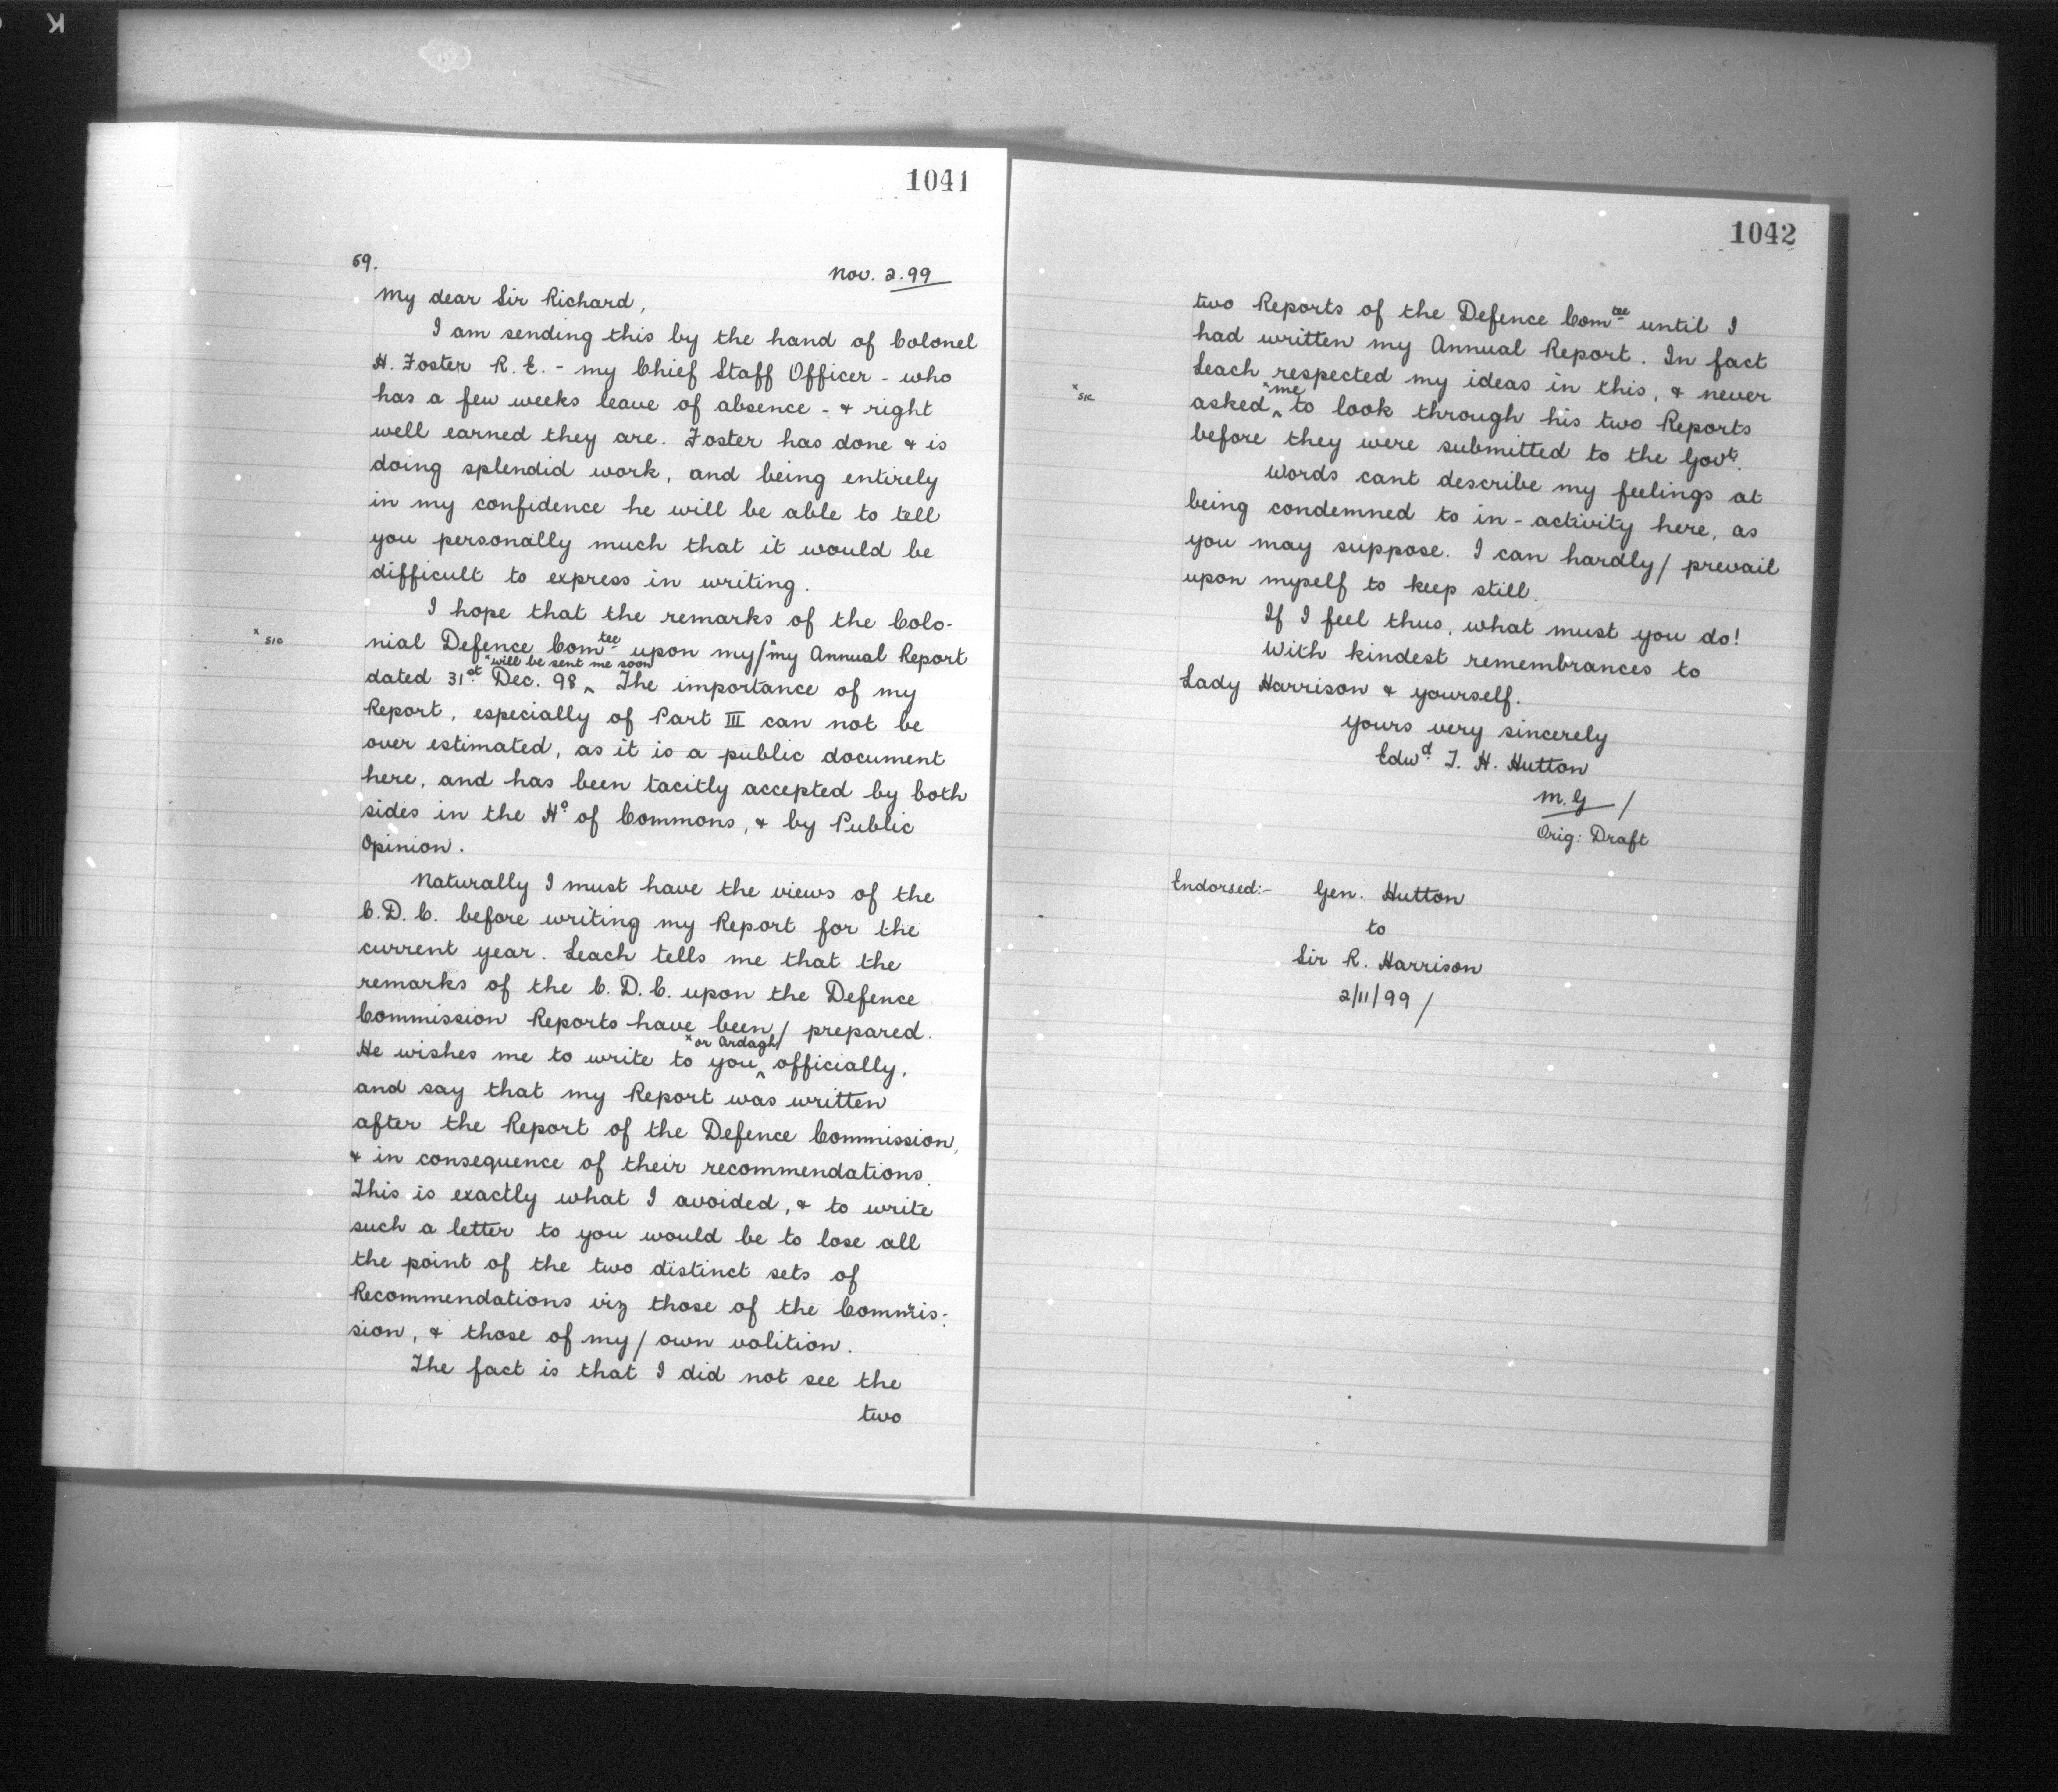 K
1041
69.
Nov. 2. 99
My dear Sir Richard,
I am sending this by the hand of Colonel
H. Foster R. E. - my Chief Staff Officer - who
has a few weeks leave of absence - & right
well earned they are. Foster has done & is
doing splendid work, and being entirely
in my confidence he will be able to tell
you personally much that it would be
difficult to express in writing.
I hope that the remarks of the Colo-
x sic
nial Defence Comtee upon my/ x my Annual Report
x will be sent me soon
dated 31st Dec. 98 ^ The importance of my
Report, especially of Part III can not be
over estimated, as it is a public document
here, and has been tacitly accepted by both
sides in the Ho of Commons, & by Public
Opinion.
Naturally I must have the views of the
C. D. C. before writing my Report for the
current year. Leach tells me that the
remarks of the C. D. C. upon the Defence
Commission Reports have been/ prepared.
x or Ardagh/
He wishes me to write to you ^ officially,
and say that my Report was written
after the Report of the Defence Commission,
& in consequence of their recommendations.
This is exactly what I avoided, & to write
such a letter to you would be to lose all
the point of the two distinct sets of
Recommendations viz those of the Commis-
sion, & those of my/ own volition.
The fact is that I did not see the
two
1042
two Reports of the Defence Comtee until I
had written my Annual Report. In fact
Leach respected my ideas in this, & never
x sic
x me
asked ^ to look through his two Reports
before they were submitted to the Govt.
Words cant describe my feelings at
being condemned to in-activity here, as
you may suppose. I can hardly/ prevail
upon myself to keep still.
If I feel thus, what must you do!
With kindest remembrances to
Lady Harrison & yourself.
Yours very sincerely
Edwd T. H. Hutton
M. G /
Orig: Draft
Endorsed:- Gen. Hutton
to
Sir R. Harrison
2/11/99 /